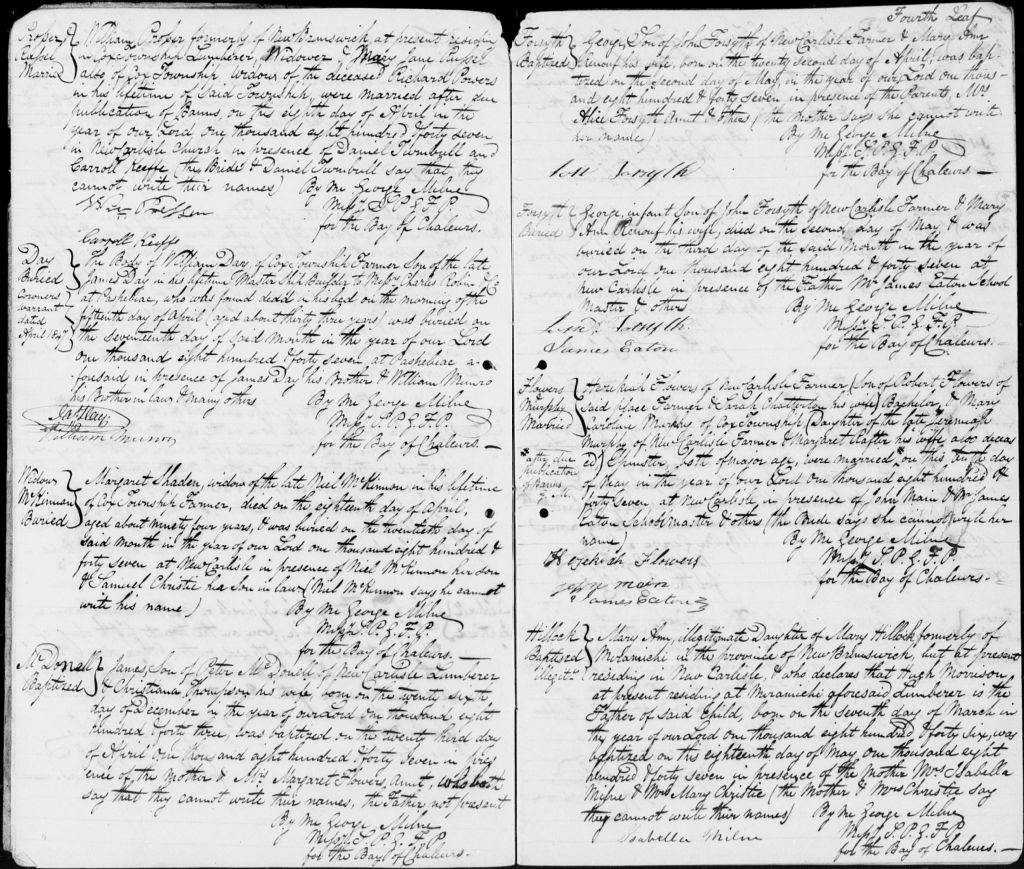 Proper
Russel
Married
William Proper formerly of New Brunswick, at present residing
in Cox Township Lumberer, Widower, & Mary Jane Russel
also of Cox Township Widow of the deceased Richard Powers
in his lifetime of said Township, were married after due
publication of Banns, on this eighth day of April in the
year of our Lord one thousand eight hundred & forty seven
in New Carlisle Church in presence of Daniel Turnbull and
Carroll Keeffe (the Bride & Daniel Turnbull say that they
cannot write their names) By Me George Milne
Missy. S. P. G. F. P.
for the Bay of Chaleurs.
Carroll Keeffe
Day
Buried
Coroners
warrant
dated
April 1847
The Body of William Day, of Cox Township Farmer Son of the late
James Day in his lifetime Master Ship Buffalo to Messrs Charles Robin & Co
at Pasbebiac, who was found dead in his bed on the morning of the
fifteenth day of April (aged about thirty three years) was buried on
the seventeenth day of said month in the year of our Lord
one thousand eight hundred & forty seven, at Pasbebiac a-
foresaid in presence of James Day his Brother & William Munro
his Brother in law & many others By Me George Milne
Missy. S. P. G. F. P.
for the Bay of Chaleurs. —
Jas Day
William Munro
Widow
McKinnon
Buried
Margaret Shaden, widow of the late Niel McKinnon in his lifetime
of Cox Township Farmer, died on the eighteenth day of April,
aged about ninety four years, & was buried on the twentieth day of
said month in the year of our Lord one thousand eight hundred &
forty seven at New Carlisle in presence of Niel McKinnon her son
& Samuel Christie her Son in law (Niel McKinnon says he cannot
write his name) By Me George Milne
Missy. S. P. G. F. P.
for the Bay of Chaleurs. —
McDonell
Baptized
James, Son of Peter McDonell of New Carlisle Lumberer
& Christiana Thompson his wife, born on the twenty sixth
day of December in the year of our Lord one thousand eight
hundred & forty three, was baptized on the twenty third day
of April one thousand eight hundred & forty seven in pres-
ence of the Mother & Mrs Margaret Flowers, Aunt, who both
say that they cannot write their names, the Father not present
By Me George Milne
Missy. S. P. G. F. P.
for the Bay of Chaleurs. —
Fourth Leaf
Forsyth
Baptized
George, Son of John Forsyth of New Carlisle Farmer & Mary Ann
Renouf his wife, born on the twenty second day of April, was bap-
tized on the second day of May, in the year of our Lord one thous-
and eight hundred & forty seven in presence of the Parents, Mrs
Alice Forsyth Aunt & others (the Mother says she cannot write
her name) By Me George Milne
Missy. S. P. G. F. P.
for the Bay of Chaleurs —
Forsyth
Buried
George, infant Son of John Forsyth of New Carlisle Farmer & Mary
Ann Renouf his wife, died on the second day of May & was
buried on the third day of the said Month in the year of
our Lord one thousand eight hundred & forty seven at
New Carlisle in presence of the Father Mr James Eaton School
Master & others By Me George Milne
Missy. S. P. G. F. P.
for the Bay of Chaleurs. —
James Eaton
Flowers
Murphy
Married
*after due
publication
of Banns
G. M.
Hezekiah Flowers of New Carlisle Farmer (Son of Robert Flowers of
said place Farmer & Sarah Chatterton his wife) Bachelor, & Mary
Caroline Murphy of Cox Township (Daughter of the late Jeremiah
Murphy of New Carlisle Farmer & Margaret his wife, also deceas
ed) Spinster, both of major age, were married * on this tenth day
of May in the year of our Lord One thousand eight hundred &
forty seven, at New Carlisle in presence of John Main & Mr James
Eaton Schoolmaster & others (the Bride says she cannot write her
name) By Me George Milne
Missy. S. P. G. F. P.
for the Bay of Chaleurs —
Hezekiah Flowers
John Main
James Eaton
Hillock
Baptized
illegite
Mary Ann, illegitimate Daughter of Mary Hillock, formerly of
Miramichi in the province of New Brunswick, but at present
residing in New Carlisle, & who declares that Hugh Morrison
at present residing at Miramichi aforesaid Lumberer is the
Father of said Child, born on the seventh day of March in
the year of our Lord one thousand eight hundred & forty six, was
baptized on this eighteenth day of May one thousand eight
hundred & forty seven in presence of the Mother Mrs Isabella
Milne & Mrs Mary Christie (the Mother & Mrs Christie say
they cannot write their names) By Me George Milne
Missy. S. P. G. F. P.
for the Bay of Chaleurs. —
Isabella Milne